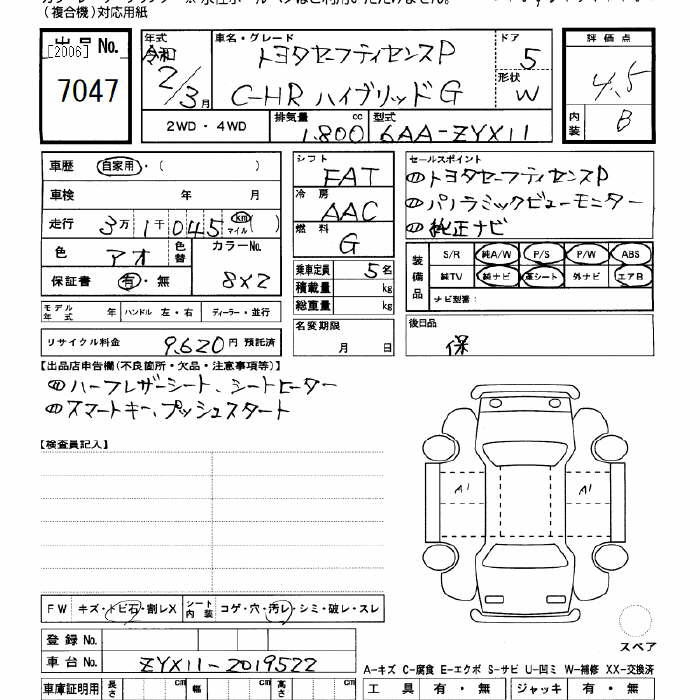 （複合機）対応用紙
出品 No.
[2006]
7047
年式
令和
2/3月
車名・グレード
トヨタセーフティセンスP
C-HR ハイブリッド G
ドア
5
形状
W
評価点
4.5
内装
B
2WD・4WD
排気量
1.800 cc
型式
6AA-ZYX11
車歴 自家用・( )
車検 年 月
走行 3万1千045 km マイル( )
色 アオ
色替
カラーNo.
8X2
保証書 有・無
シフト
FAT
冷房
AAC
燃料
G
乗車定員 5名
積載量 kg
総重量 kg
セールスポイント
①トヨタセーフティセンスP
②パノラミックビューモニター
③純正ナビ
装備品
S/R 純A/W P/S P/W ABS
純TV 純ナビ 革シート 外ナビ エアB
ナビ型番：
モデル年式 年 ハンドル 左・右 ディーラー・並行
名変期限
月 日
後日品
保
リサイクル料金 9,620円 預託済
【出品店申告欄(不良箇所・欠品・注意事項等)】
①ハーフレザーシート、シートヒーター
②スマートキー、プッシュスタート
【検査員記入】
A1
A1
FW キズ・トビ石・割レX シート内装 コゲ・穴・汚レ・シミ・破レ・スレ
登録 No.
車台 No. ZYX11-2019522
スペア
A-キズ C-腐食 E-エクボ S-サビ U-凹ミ W-補修 XX-交換済
車庫証明用 長さ cm 幅 cm 高さ cm
工具 有・無 ジャッキ 有・無